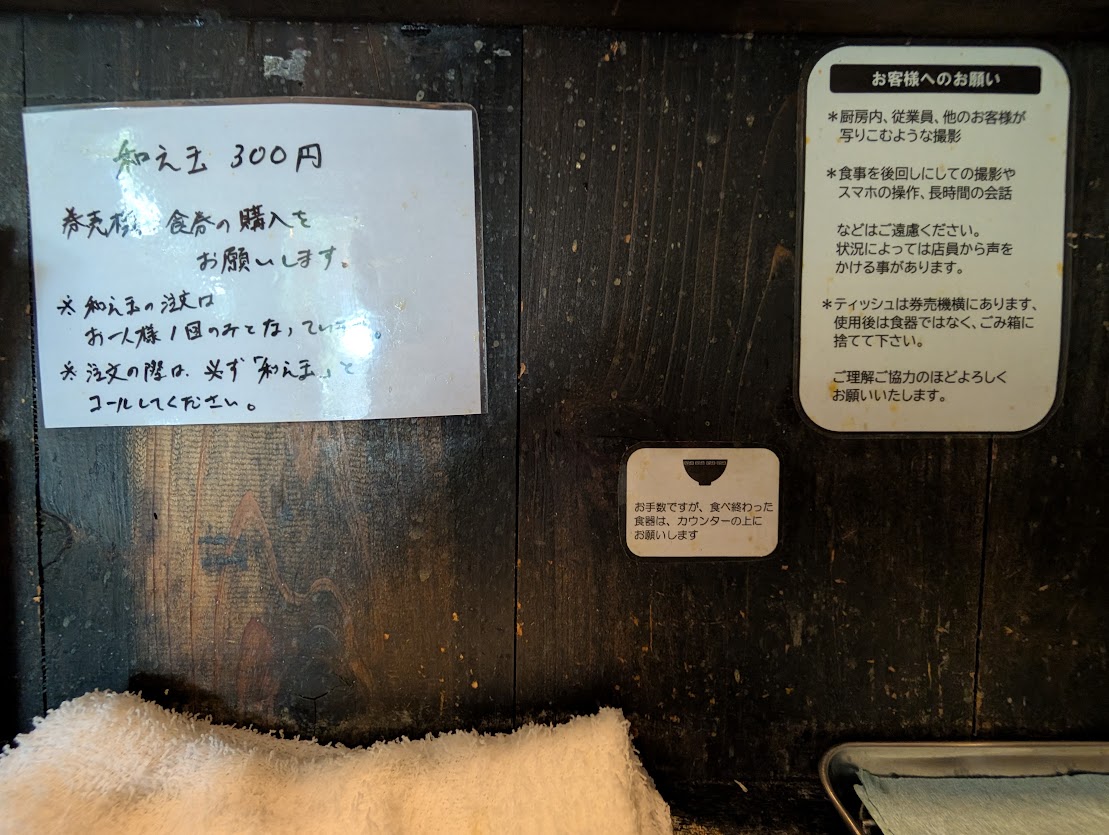 和え玉 300円
券売機で食券の購入を
お願いします。
※ 和え玉の注文は
お一人様1回のみとなっています。
※ 注文の際は、必ず「和え玉」と
コールしてください。
お客様へのお願い
＊厨房内、従業員、他のお客様が
写りこむような撮影
＊食事を後回しにしての撮影や
スマホの操作、長時間の会話
などはご遠慮ください。
状況によっては店員から声を
かける事があります。
＊ティッシュは券売機横にあります、
使用後は食器ではなく、ごみ箱に
捨てて下さい。
ご理解ご協力のほどよろしく
お願いいたします。
お手数ですが、食べ終わった
食器は、カウンターの上に
お願いします